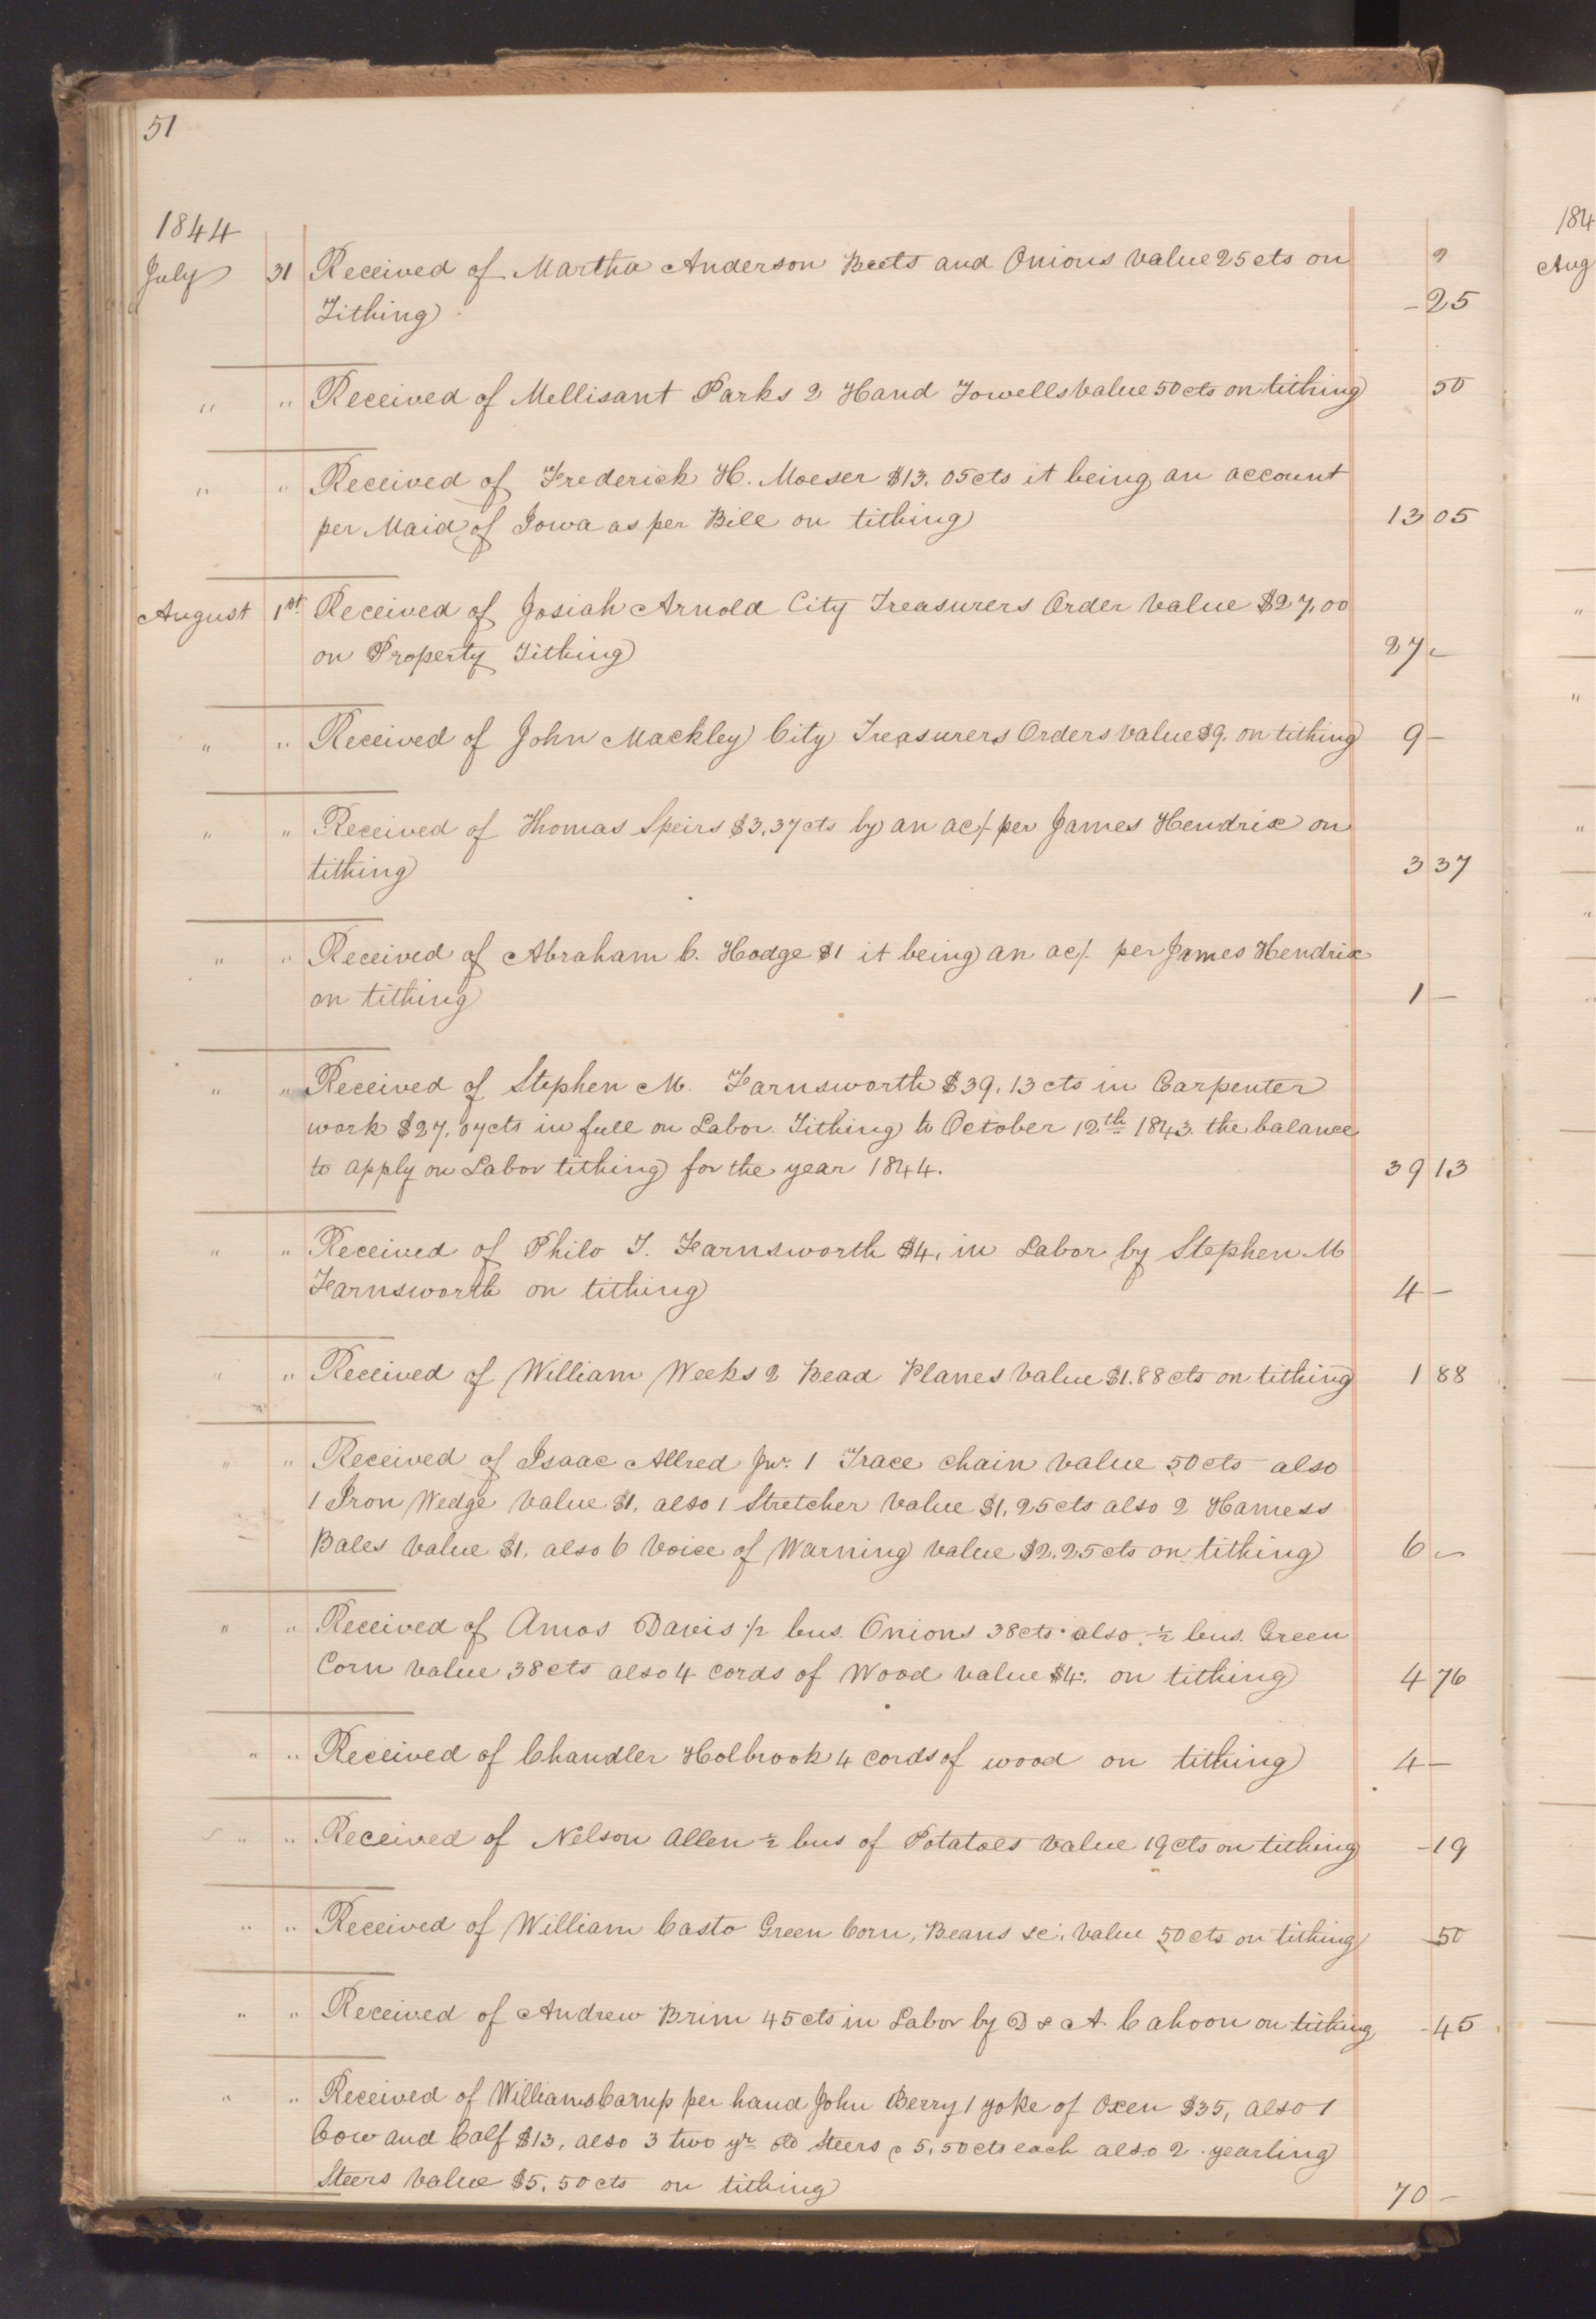 51
1844
July 31 Received of Martha Anderson Beets and Onions value 25 cts on
Tithing - 25
" " Received of Mellisant Parks 2 Hand Towells value 50 cts on tithing 50
" " Received of Frederick H. Moeser $13.05 cts it being an account
per Maid of Iowa as per Bill on tithing 13 05
August 1st Received of Josiah Arnold City Treasurers Order value $27,00
on Property Tithing 27 -
" " Received of John Mackley City Treasurers Orders value $9. on tithing 9 -
" " Received of Thomas Speirs $3,37 cts by an ac/- per James Hendrix on
tithing 3 37
" " Received of Abraham C. Hodge $1 it being an ac/. per James Hendrix
on tithing 1 -
" " Received of Stephen M. Farnsworth $39.13 cts in Carpenter
work $27.07 cts in full on Labor Tithing to October 12th 1843. the balance
to apply on Labor tithing for the year 1844. 39 13
" " Received of Philo T. Farnsworth $4, in Labor by Stephen M
Farnsworth on tithing 4 -
" " Received of William Weeks 2 Bead Planes value $1.88 cts on tithing 1 88
" " Received of Isaac Allred Jnr. 1 Trace chain value 50 cts also
1 Iron Wedge value $1, also 1 Stretcher value $1,25 cts also 2 Hamess
Bales value $1. also 6 Voice of Warning value $2,25 cts on tithing 6 -
" " Received of Amos Davis ½ bus. Onions 38 cts. also ½ bus. Green
Corn value 38 cts also 4 cords of Wood value $4. on tithing 4 76
" " Received of Chandler Holbrook 4 cords of wood on tithing 4 -
" " Received of Nelson Allen ½ bus of Potatoes value 19 cts on tithing - 19
" " Received of William Casto Green Corn, Beans &c. value 50 cts on tithing - 50
" " Received of Andrew Brim 45 cts in Labor by D & A. Cahoon on tithing - 45
" " Received of Williams Camp per hand John Berry 1 yoke of Oxen $35, also 1
Cow and Calf $13, also 3 two yr old Steers @ 5,50 cts each also 2 yearling
Steers value $5.50 cts on tithing 70 -
184
Aug